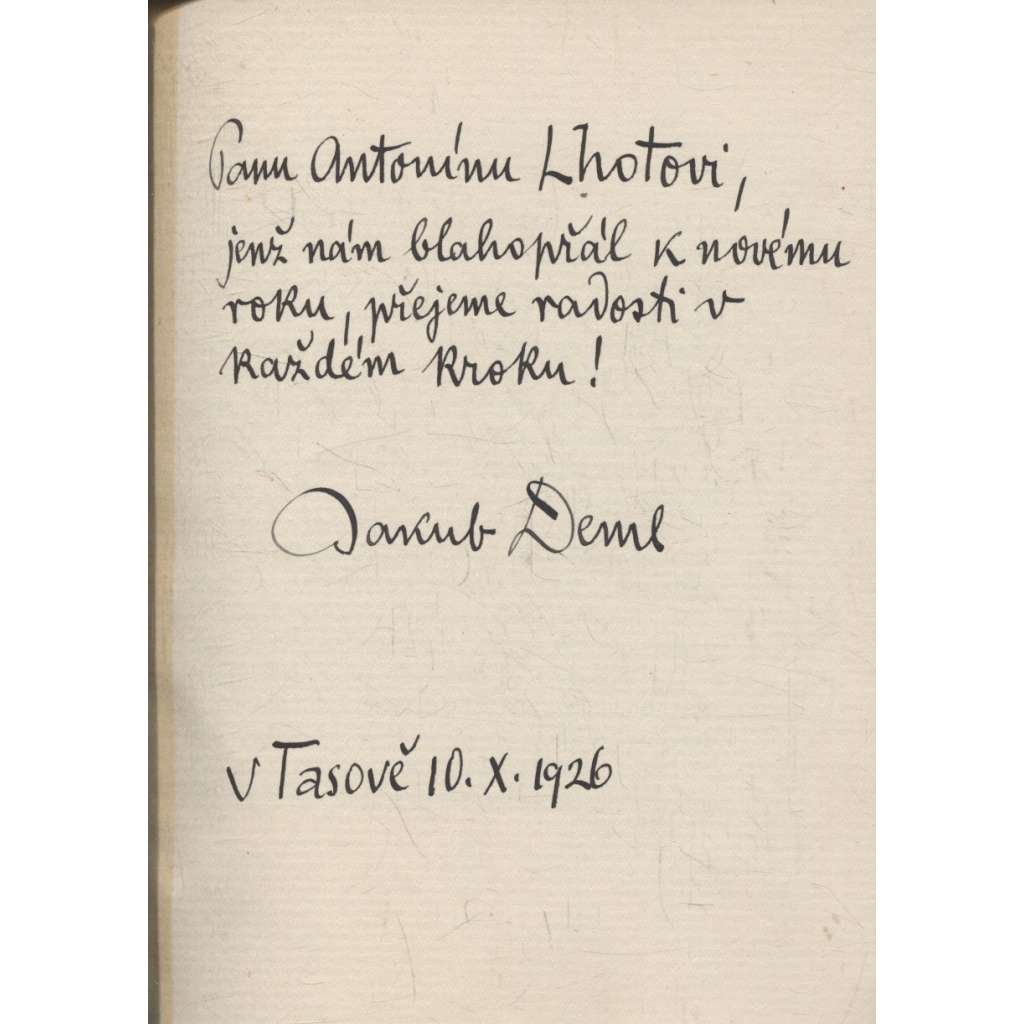 Panu Antonínu Lhotovi,
jenž nám blahopřál k novému
roku, přejeme radosti v
každém kroku!
Jakub Deml
V Tasově 10. X. 1926